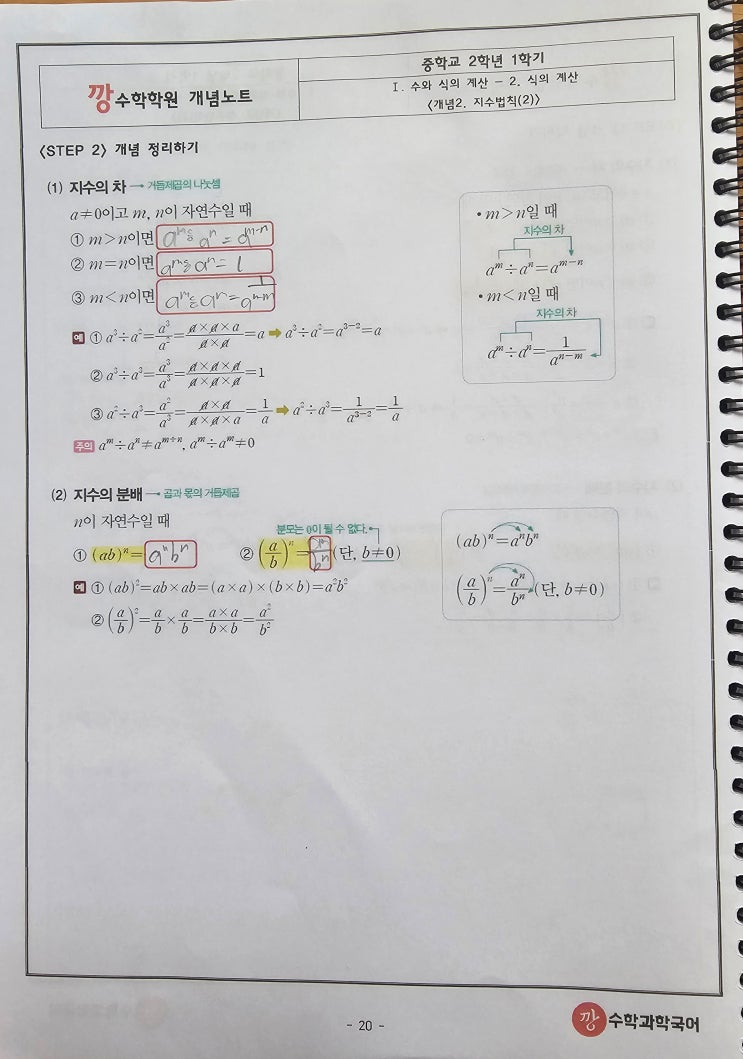 깡수학학원 개념노트
중학교 2학년 1학기
Ⅰ. 수와 식의 계산 - 2. 식의 계산
<개념2. 지수법칙(2)>
<STEP 2> 개념 정리하기
(1) 지수의 차 → 거듭제곱의 나눗셈
a≠0이고 m, n이 자연수일 때
① m>n이면 a^m÷a^n=a^(m-n)
② m=n이면 a^m÷a^n=1
③ m<n이면 a^m÷a^n=1/a^(n-m)
예 ① a³÷a²=a³/a²=(a×a×a)/(a×a)=a ➡ a³÷a²=a^(3-2)=a
② a³÷a³=a³/a³=(a×a×a)/(a×a×a)=1
③ a²÷a³=a²/a³=(a×a)/(a×a×a)=1/a ➡ a²÷a³=1/a^(3-2)=1/a
주의 a^m÷a^n≠a^(m÷n), a^m÷a^m≠0
• m>n일 때
지수의 차
a^m÷a^n=a^(m-n)
• m<n일 때
지수의 차
a^m÷a^n=1/a^(n-m)
(2) 지수의 분배 → 곱과 몫의 거듭제곱
n이 자연수일 때
분모는 0이 될 수 없다.
① (ab)^n=a^n b^n ② (a/b)^n=a^n/b^n (단, b≠0)
예 ① (ab)²=ab×ab=(a×a)×(b×b)=a²b²
② (a/b)²=a/b×a/b=(a×a)/(b×b)=a²/b²
(ab)^n=a^n b^n
(a/b)^n=a^n/b^n (단, b≠0)
- 20 -
깡 수학과학국어